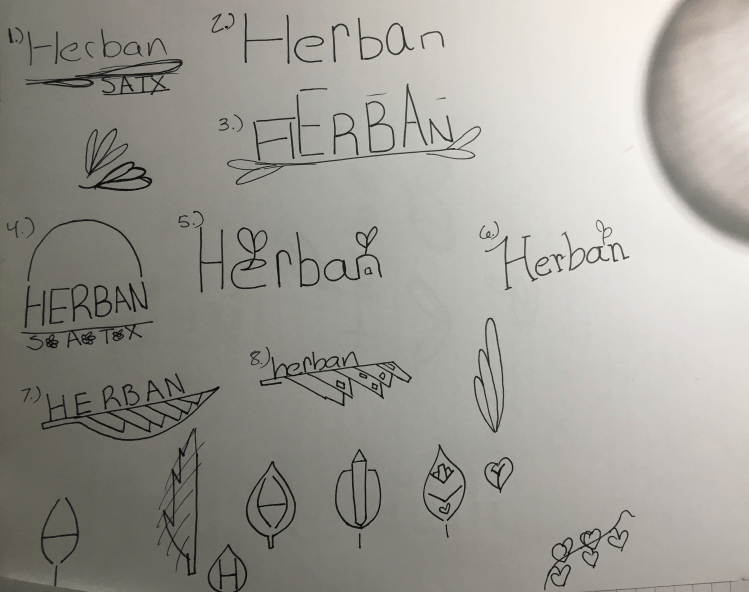 1.) Herban
SATX
2.) Herban
3.) HERBAN
4.) HERBAN
S A T X
5.) Herban
6.) Herban
7.) HERBAN
8.) herban
H